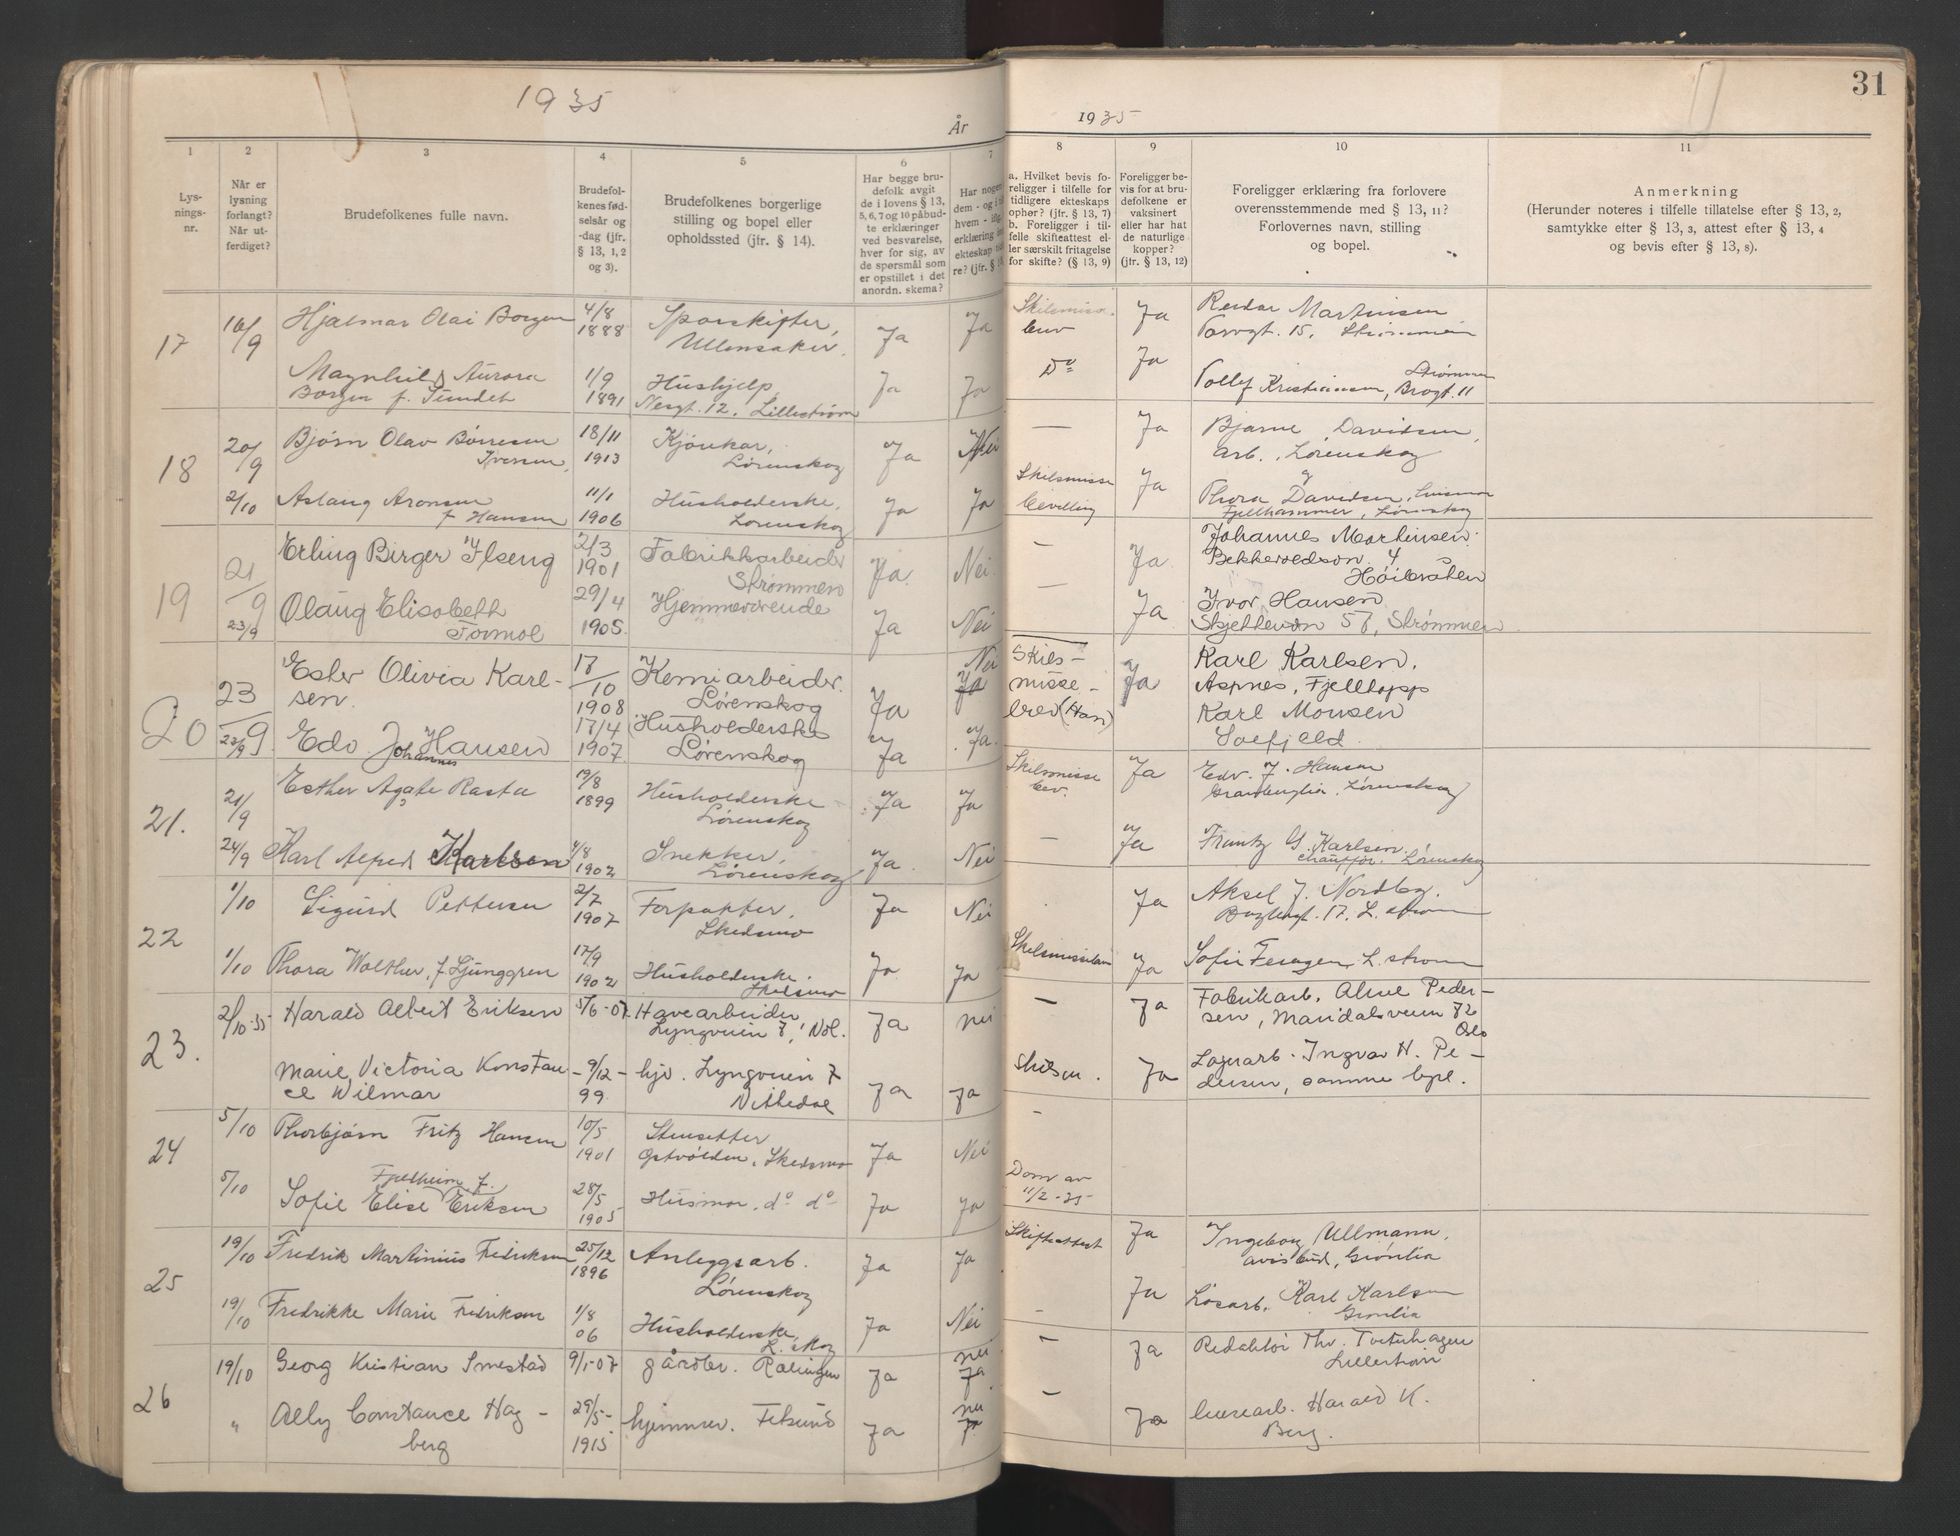 1935
År
1935
31
1
2
3
4
5
6
7
8
9
10
11
Lys-
nings-
nr.
Når er
lysning
forlangt?
Når ut-
ferdiget?
Brudefolkenes fulle navn.
Brudefol-
kenes fød-
selsår og
-dag (jfr.
§ 13, 1, 2
og 3).
Brudefolkenes borgerlige
stilling og bopel eller
opholdssted (jfr. § 14).
Har begge bru-
defolk avgit
de i lovens § 13,
5, 6, 7 og 10 påbud-
te erklæringer
ved besvarelse,
hver for sig, av
de spørsmål som
er opstillet i det
anordn. skema?
Har nogen
dem - og i
hvem - ifl
erklæring
ekteskap tid
re? (jfr. §
a. Hvilket bevis fo-
religger i tilfelle for
tidligere ekteskaps
ophør? (jfr. § 13, 7)
b. Foreligger i til-
felle skifteattest el-
ler særskilt fritagelse
for skifte? (§ 13, 9)
Foreligger be-
vis for at bru-
defolkene er
vaksinert
eller har hat
de naturlige
kopper?
(jfr. § 13, 12)
Foreligger erklæring fra forlovere
overensstemmende med § 13, 11?
Forlovernes navn, stilling
og bopel.
Anmerkning
(Herunder noteres i tilfelle tillatelse efter § 13, 2,
samtykke efter § 13, 3, attest efter § 13, 4
og bevis efter § 13, 8).
17 16/9 Hjalmar Olai Borgen 4/8 1888 Sporskifter, Ja Ja Skilsmiss. Ja Reidar Martinsen
Ullensaker. bev. 15, Strømmen
Magnhild Aurora 1/9 1891 Hushjelp Ja Ja Do Ja Tollef Kristiansen, Strømmen
Borgen f. Sundet Nesgt. 12, Lillestrøm Brogt. 11
18 20/9 Bjørn Olav Børresen 18/11 1913 Ja Nei — Ja Bjarne Davidsen,
Iversen, Lørenskog arb., Lørenskog
2/10 Aslaug Aronsen 11/1 1906 Husholderske, Ja Ja Skilsmisse Ja Thora Davidsen,
f. Hansen Lørenskog bevilling Fjellhammer, Lørenskog
19 21/9 Erling Birger Ilseng 2/3 1901 Fabrikkarbeider Ja. Nei. — Ja. Johannes Martinsen.
Strømmen 4
Høibråten
23/9 Olaug Elisabeth 29/4 1905. Hjemmeværende Ja Nei — Ja Ivar Hansen
Formo Skjettenvn 57, Strømmen
20 23/9 Ester Olivia Karl- 17/10 1908 Kemiarbeider. Ja Nei Skils- Ja Karl Karlsen.
sen. Lørenskog misse- Aspnes, Fjelltopp
23/9 Edv. Johannes Hansen 17/4 1907 Husholderske Ja Ja. brev (Han) Karl Monsen
Lørenskog Solfjeld.
21. 21/9 Esther Agate Rasta 19/8 1899 Husholderske Ja Ja Skilsmisse Ja Edv. J. Hansen
Lørenskog bev. Lørenskog
24/9 Karl Alfred Karlsen 4/8 1902 Snekker, Ja. Nei — Ja Frantz G. Karlsen.
Lørenskog chauffør. Lørenskog
22 1/10 Sigurd Pettersen 2/7 1907 Forpakter, Ja Nei Ja Aksel J. Nordby.
Skedsmo 17. L. strøm
1/10 Thora Wolther, f. Ljunggren 17/9 1902 Husholderske. Ja. Ja Skilsmissebev Ja Sofie Feragen, L. strøm
Skedsmo
23. 2/10-35 Harald Albert Eriksen 5/6-07 Havearbeider Ja nei — Ja Fabrikarb. Alme Peder-
Lyngveien 7, Ndl. sen, Maridalsveien 72
Oslo
Marie Victoria Konstan- 9/12-99 hjv. Lyngveien 7 Ja Ja skilsm. Ja Lagerarb. Ingvar H. Pe-
ce Wilmar Nittedal dersen, samme bpl.
24 5/10 Thorbjørn Fritz Hansen 10/5 1901 Stensetter Ja Nei —
Skedsmo
5/10 Fjeldheim f. 28/5 1905 Husmor, do do Ja Ja Dom av
Sofie Elise Eriksen 11/2-35
25 19/10 Fredrik Martinius Fredriksen 25/12 1896 Anleggsarb. Ja Ja Skifteattest Ja Ingeborg Ullmann,
Lørenskog avisbud, Grønlia
19/10 Fredrikke Marie Fredriksen 1/8 06 Husholderske, Ja Nei — Ja Løsarb. Karl Karlsen
L. skog Grønlia
26 19/10 Georg Kristian Smestad 9/1-07 gårdbr. Rælingen Ja nei Ja — Ja Redaktør Thv. Tveterhagen
Lillestrøm
" Ally Constance Hag- 29/5-1915 hjemmev. Fetsund Ja nei Ja — Ja Harald K.
berg Berg.